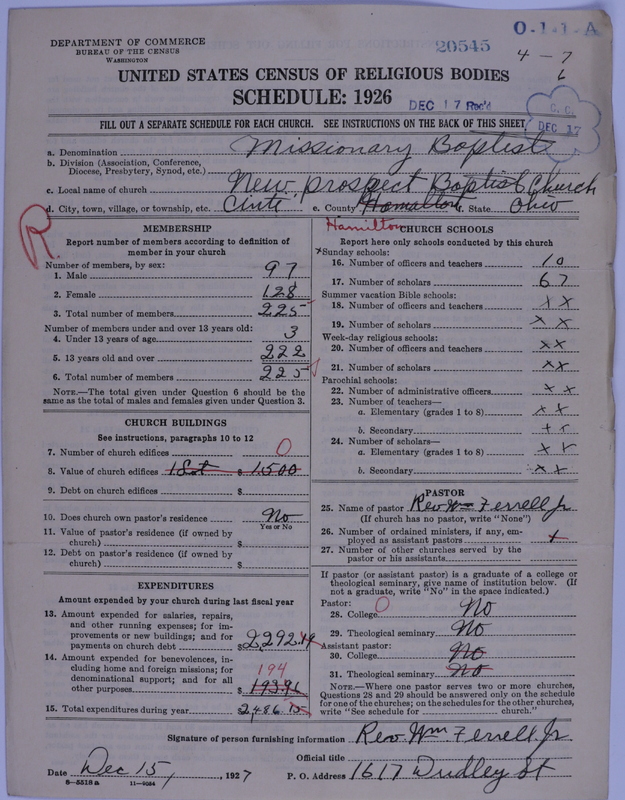 O-1-1-A
DEPARTMENT OF COMMERCE
BUREAU OF THE CENSUS
WASHINGTON
20545
4-7
6
UNITED STATES CENSUS OF RELIGIOUS BODIES
SCHEDULE: 1926
DEC 17 Rec'd
C. C.
DEC 17
FILL OUT A SEPARATE SCHEDULE FOR EACH CHURCH. SEE INSTRUCTIONS ON THE BACK OF THIS SHEET
a. Denomination Missionary Baptist
b. Division (Association, Conference,
Diocese, Presbytery, Synod, etc.)
c. Local name of church New prospect Baptist Church
d. City, town, village, or township, etc. Cinti e. County Hamalton f. State Ohio
Hamilton
R.
MEMBERSHIP
Report number of members according to definition of
member in your church
Number of members, by sex:
1. Male 97
2. Female 128
3. Total number of members 225
Number of members under and over 13 years old:
4. Under 13 years of age 3
5. 13 years old and over 222
6. Total number of members 225
NOTE.—The total given under Question 6 should be the
same as the total of males and females given under Question 3.
CHURCH BUILDINGS
See instructions, paragraphs 10 to 12
7. Number of church edifices 0
8. Value of church edifices 1 Lot $ 1500
9. Debt on church edifices $
10. Does church own pastor's residence No
Yes or No
11. Value of pastor's residence (if owned by
church) $
12. Debt on pastor's residence (if owned by
church) $
EXPENDITURES
Amount expended by your church during last fiscal year
13. Amount expended for salaries, repairs,
and other running expenses; for im-
provements or new buildings; and for
payments on church debt $2292.19
14. Amount expended for benevolences, in-
cluding home and foreign missions; for
denominational support; and for all
other purposes $ 193.96
194
15. Total expenditures during year 2,486.15
CHURCH SCHOOLS
Report here only schools conducted by this church
Sunday schools:
16. Number of officers and teachers 10
17. Number of scholars 67
Summer vacation Bible schools:
18. Number of officers and teachers x x
19. Number of scholars x x
Week-day religious schools:
20. Number of officers and teachers x x
21. Number of scholars x x
Parochial schools:
22. Number of administrative officers x x
23. Number of teachers—
a. Elementary (grades 1 to 8) x x
b. Secondary x x
24. Number of scholars—
a. Elementary (grades 1 to 8) x x
b. Secondary x x
PASTOR
25. Name of pastor Rev Wm Ferrell Jr
(If church has no pastor, write "None")
26. Number of ordained ministers, if any, em-
ployed as assistant pastors
27. Number of other churches served by the
pastor or his assistants
If pastor (or assistant pastor) is a graduate of a college or
theological seminary, give name of institution below. (If
not a graduate, write "No" in the space indicated.)
Pastor: 0
28. College No
29. Theological seminary No
Assistant pastor:
30. College No
31. Theological seminary No
NOTE.—Where one pastor serves two or more churches,
Questions 28 and 29 should be answered only on the schedule
for one of the churches; on the schedules for the other churches,
write "See schedule for church."
Signature of person furnishing information Rev. Wm Ferrell, Jr
Official title
Date Dec 15, 1927 P. O. Address 1617 Dudley St
8-5518 a 11-9054